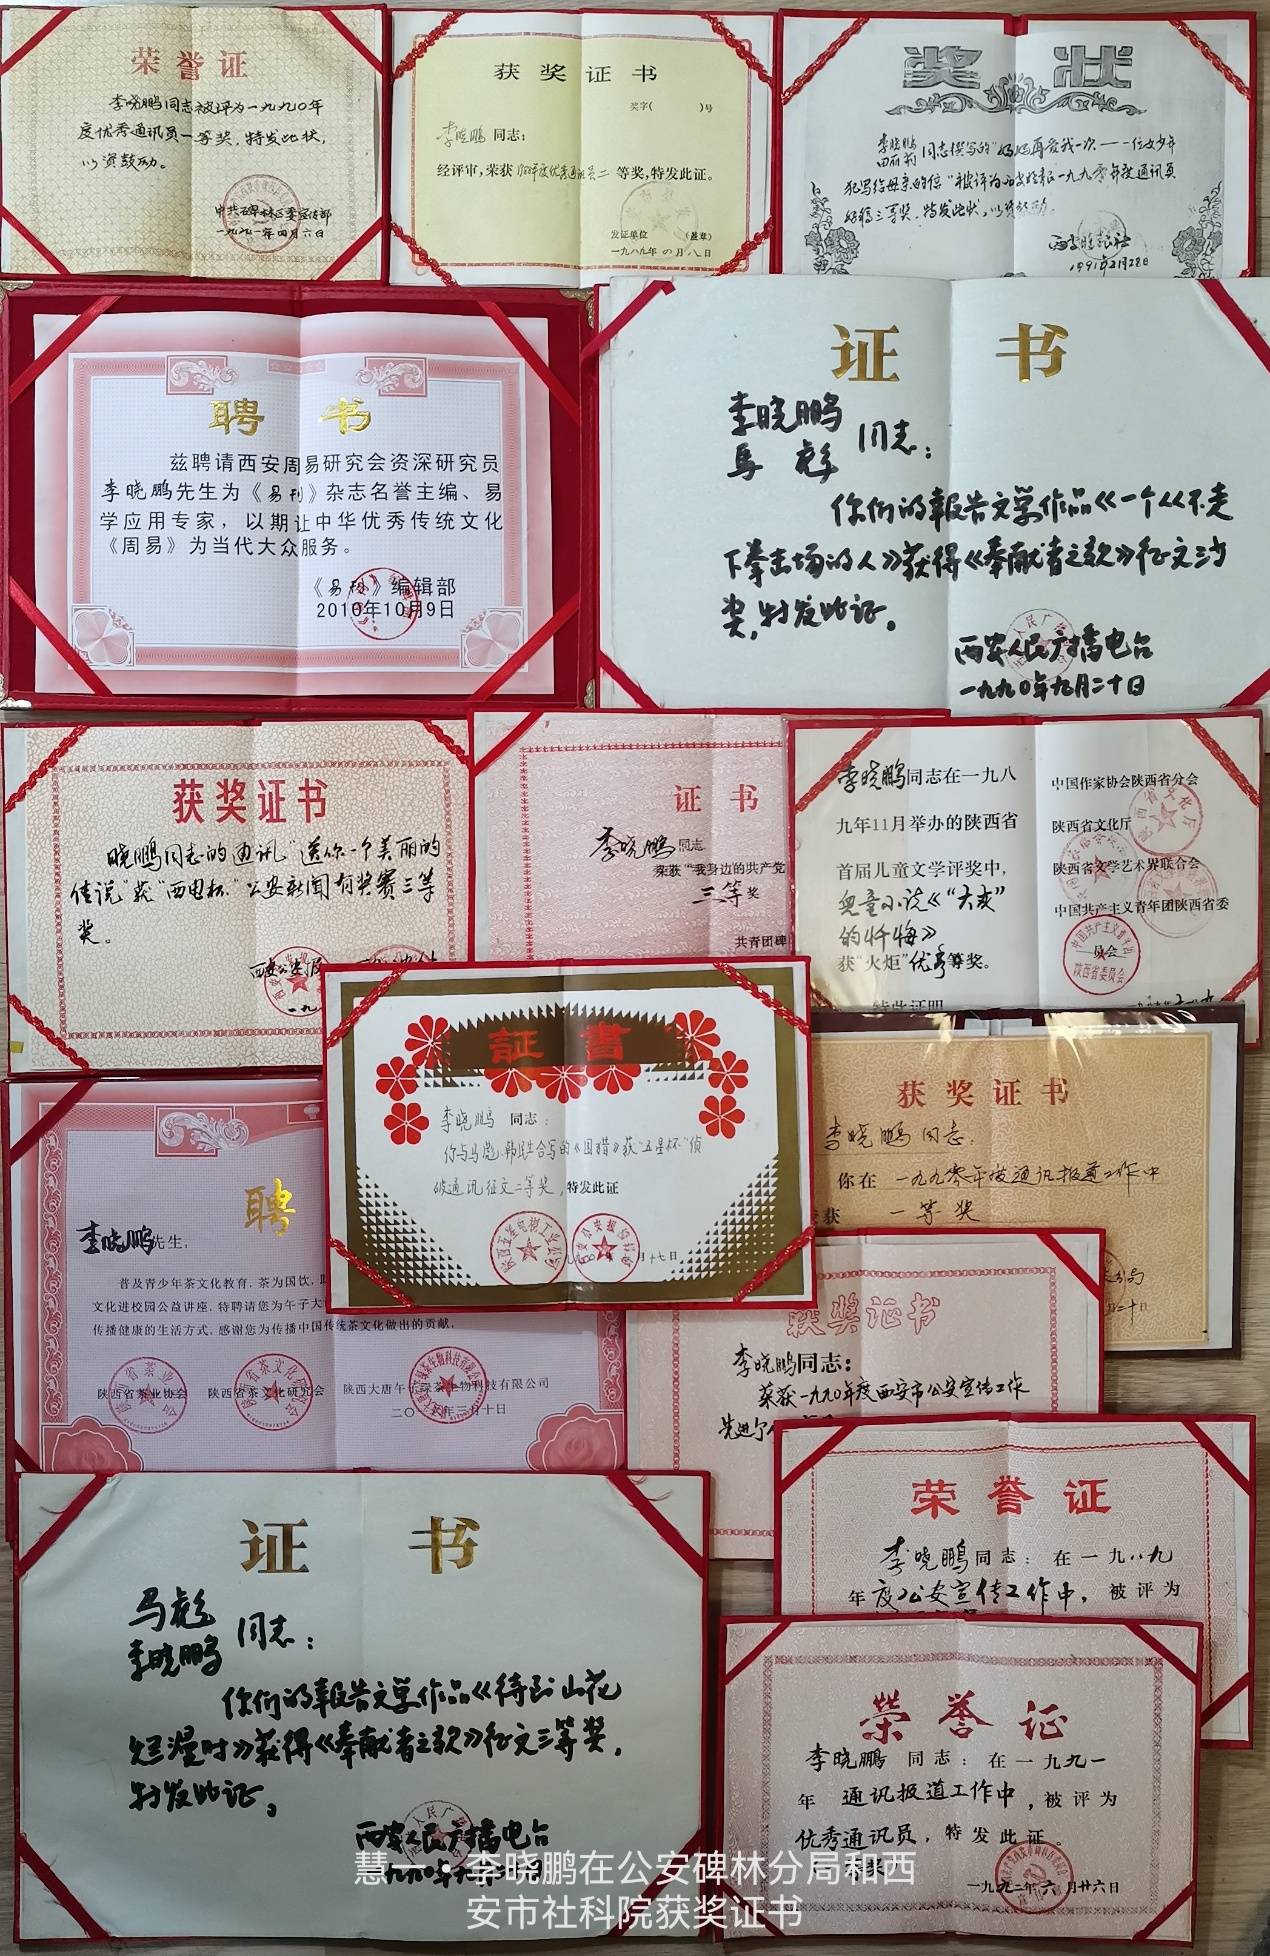 荣誉证
李晓鹏同志被评为一九九〇年
度优秀通讯员一等奖,特发此状,
以资鼓励。
中共碑林区委宣传部
一九九一年四月六日
获奖证书
奖字( )号
李晓鹏 同志:
经评审,荣获1988年度优秀通讯员二等奖,特发此证。
发证单位 (盖章)
一九八九年四月八日
奖状
李晓鹏
田丽莉 同志撰写的"妈妈再爱我一次——一位女少年
犯写给母亲的信"被评为西安晚报一九九零年度通讯员
好稿三等奖,特发此状,以资鼓励。
西安晚报社
1991年2月28日
聘书
兹聘请西安周易研究会资深研究员
李晓鹏先生为《易刊》杂志名誉主编、易
学应用专家,以期让中华优秀传统文化
《周易》为当代大众服务。
《易刊》编辑部
2010年10月9日
证书
李晓鹏
马彪 同志:
你们的报告文学作品《一个《不走
下拳击场的人》获得《奉献者之歌》征文三等
奖,特发此证。
西安人民广播电台
一九九〇年九月二十日
获奖证书
晓鹏同志的通讯"送你一个美丽的
传说"获"西电杯"公安新闻有奖赛三等
奖。
西安公安报
证书
李晓鹏 同志
荣获"我身边的共产党
三等奖
共青团碑
李晓鹏同志在一九八
九年11月举办的陕西省
首届儿童文学评奖中,
儿童小说《"大皮"
的忏悔》
获"火炬"优秀等奖。
特此证明
中国作家协会陕西省分会
陕西省文化厅
陕西省文学艺术界联合会
中国共产主义青年团陕西省委
员会
証書
李晓鹏 同志:
你与马彪、韩民生合写的《围猎》获"五星杯"侦
破通讯征文二等奖,特发此证
月十七日
获奖证书
李晓鹏同志:
你在一九九零年度通讯报道工作中
获 一等奖
聘
李晓鹏先生:
普及青少年茶文化教育,茶为国饮,
文化进校园公益讲座,特聘请您为午子大
传播健康的生活方式,感谢您为传播中国传统茶文化做出的贡献。
陕西省茶业协会 陕西省茶文化研究会 陕西大唐午子绿茶生物科技有限公司
年三月十日
获奖证书
李晓鹏同志:
荣获一九九〇年度西安市公安宣传工作
先进个人
荣誉证
李晓鹏同志:在一九八九
年度公安宣传工作中,被评为
证书
马彪
李晓鹏 同志:
你们的报告文学作品《待到山花
烂漫时》获得《奉献者之歌》征文三等奖,
特发此证。
西安人民广播电台
荣誉证
李晓鹏 同志:在一九九一
年 通讯报道工作中,被评为
优秀通讯员,特发此证。
一九九二年六月廿六日
慧一:李晓鹏在公安碑林分局和西
安市社科院获奖证书